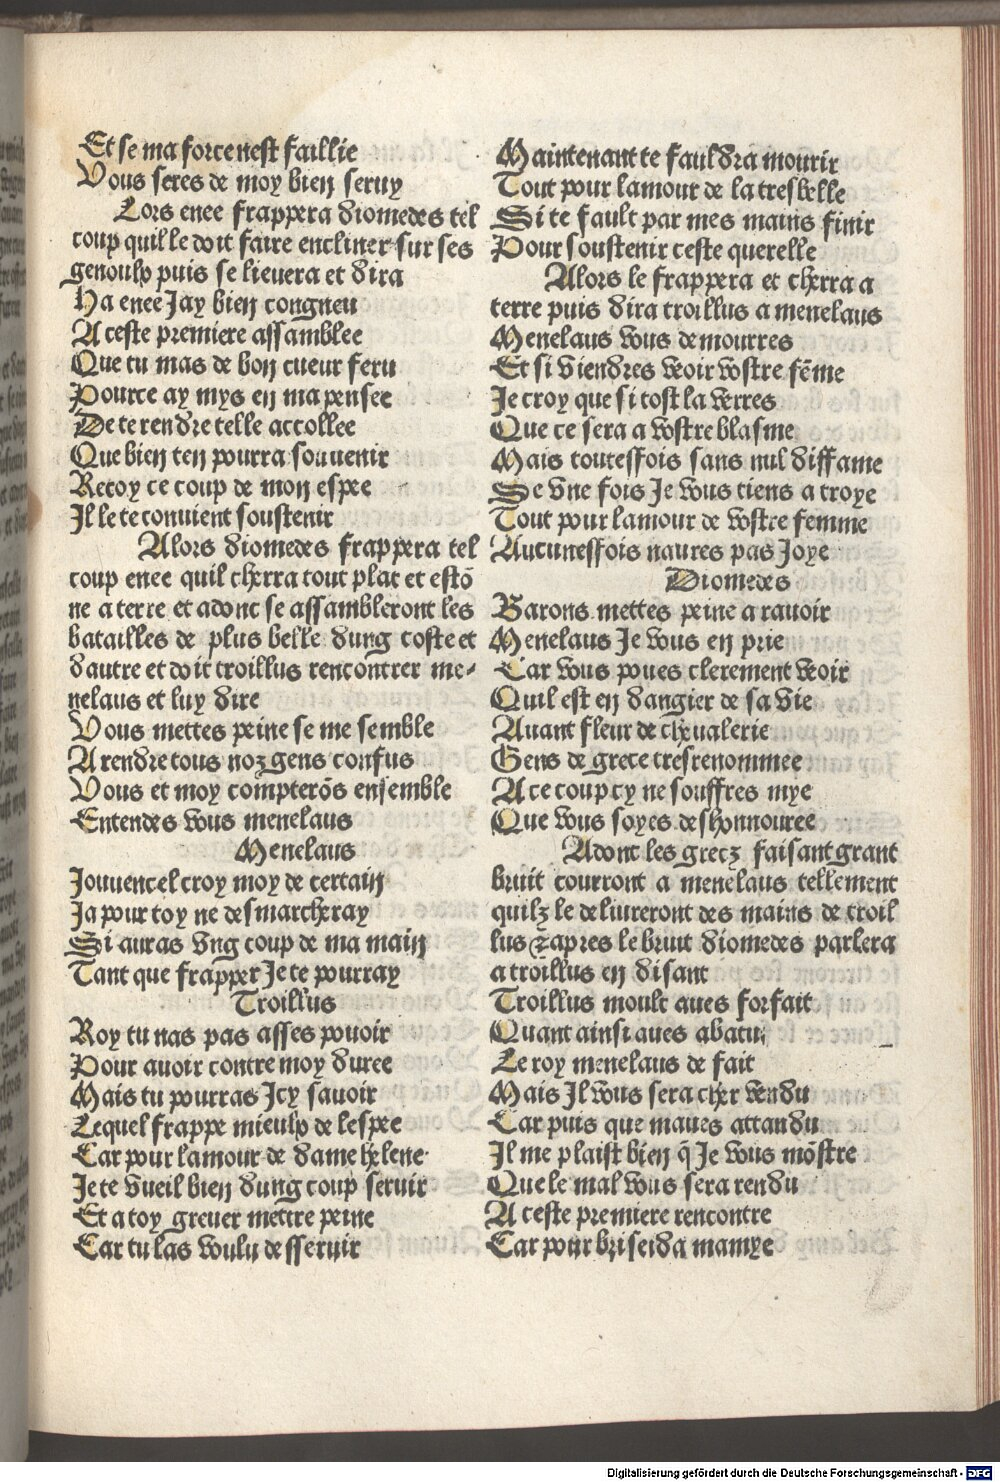 Et se ma force nest faillie
Vous seres de moy bien seruy
Lors enee frappera diomedes tel
coup quil le doit faire encliner sur ses
genoulx puis se lieuera et dira
Ha enee Jay bien congneu
A ceste premiere assamblee
Que tu mas de bon cueur feru
Pource ay mys en ma pensee
De te rendre telle accollee
Que bien ten pourra souuenir
Recoy ce coup de mon espee
Il le te conuient soustenir
Alors diomedes frappera tel
coup enee quil cherra tout plat et estō
ne a terre et adonc se assambleront les
batailles de plus belle dung coste et
dautre et doit troillus rencontrer me-
nelaus et luy dire
Vous mettes peine se me semble
A rendre tous noz gens confus
Vous et moy compterōs ensemble
Entendes vous menelaus
Menelaus
Jouuencel croy moy de certain
Ja pour toy ne desmarcheray
Si auras vng coup de ma main
Tant que frapper Je te pourray
Troillus
Roy tu nas pas asses pouoir
Pour auoir contre moy duree
Mais tu pourras Icy sauoir
Lequel frappe mieulx de lespee
Car pour lamour de dame helene
Je te vueil bien dung coup seruir
Et a toy greuer mettre peine
Car tu las voulu desseruir
Maintenant te fauldra mourir
Tout pour lamour de la tresbelle
Si te fault par mes mains finir
Pour soustenir ceste querelle
Alors le frappera et cherra a
terre puis dira troillus a menelaus
Menelaus vous demourres
Et si viendres veoir vostre fēme
Je croy que si tost la verres
Que ce sera a vostre blasme
Mais toutesfois sans nul diffame
Se vne fois Je vous tiens a troye
Tout pour lamour de vostre femme
Aucunesfois naures pas Joye
Diomedes
Barons mettes peine a rauoir
Menelaus Je vous en prie
Car vous poues clerement veoir
Quil est en dangier de sa vie
Auant fleur de cheualerie
Gens de grece tresrenommee
A ce coup cy ne souffres mye
Que vous soyes deshonnouree
Adonc les grecz faisant grant
bruit courront a menelaus tellement
quilz le deliureront des mains de troil
lus ⁊ apres le bruit diomedes parlera
a troillus en disant
Troillus moult aues forfait
Quant ainsi aues abatu
Le roy menelaus de fait
Mais Il vous sera cher vendu
Car puis que maues attandu
Il me plaist bien q̄ Je vous mōstre
Que le mal vous sera rendu
A ceste premiere rencontre
Car pour briseida mamye
Digitalisierung gefördert durch die Deutsche Forschungsgemeinschaft - DFG